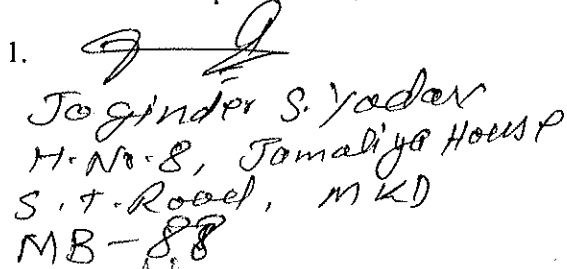 1.
Joginder S. Yadav
H.No.8, Jamaliya House
S.T.Road, MKD
MB-88